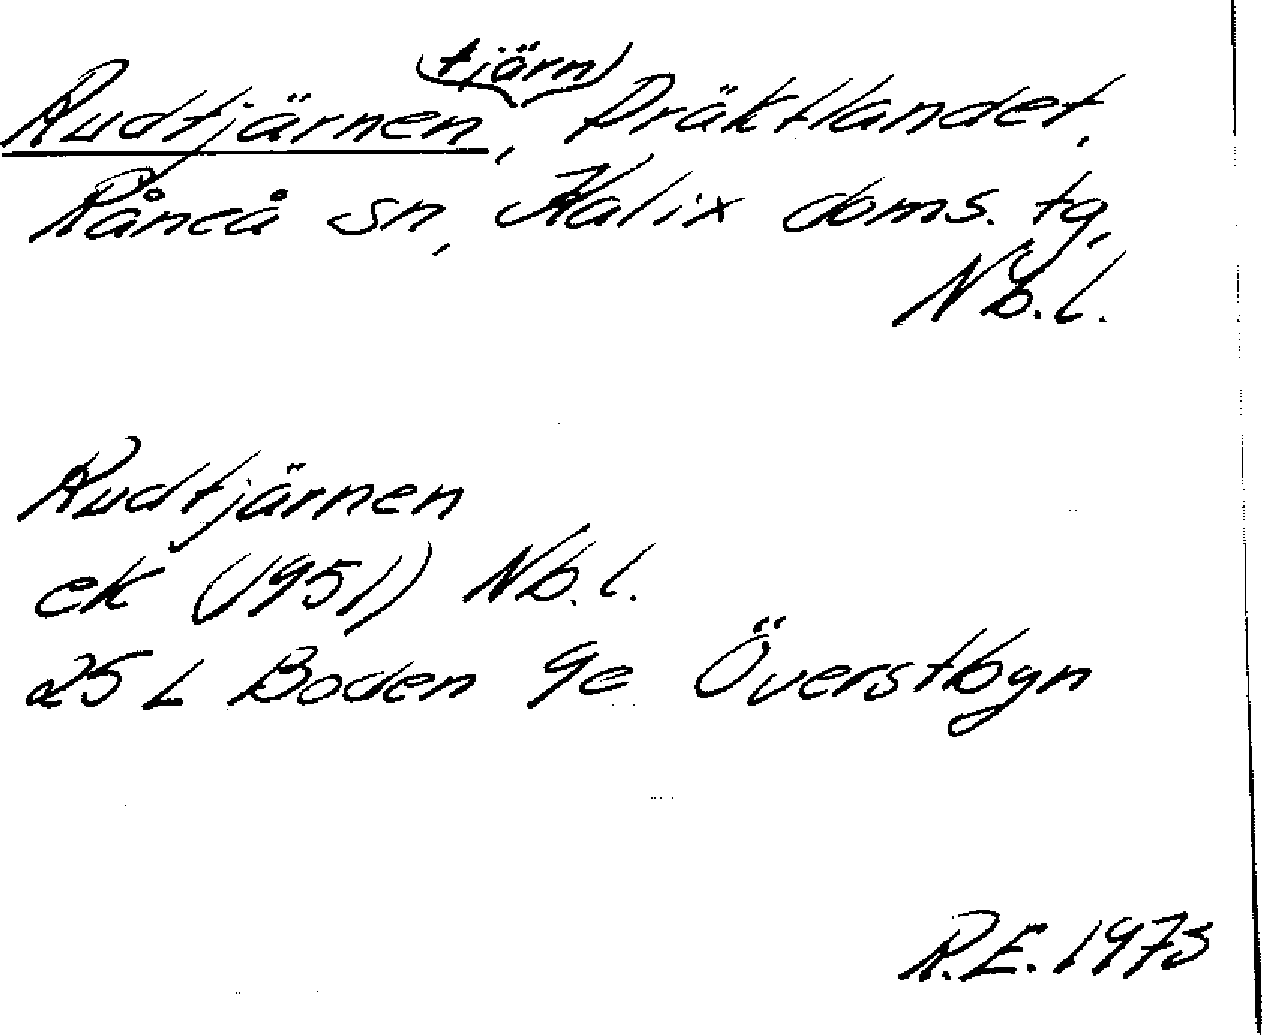 (tjärn)
Rudtjärnen, Präktlandet,
Råneå sn, Kalix doms. tg,
Nb. l.
Rudtjärnen
ek (1951) Nb. l.
25 L Boden 9e Överstbyn
R.E. 1973